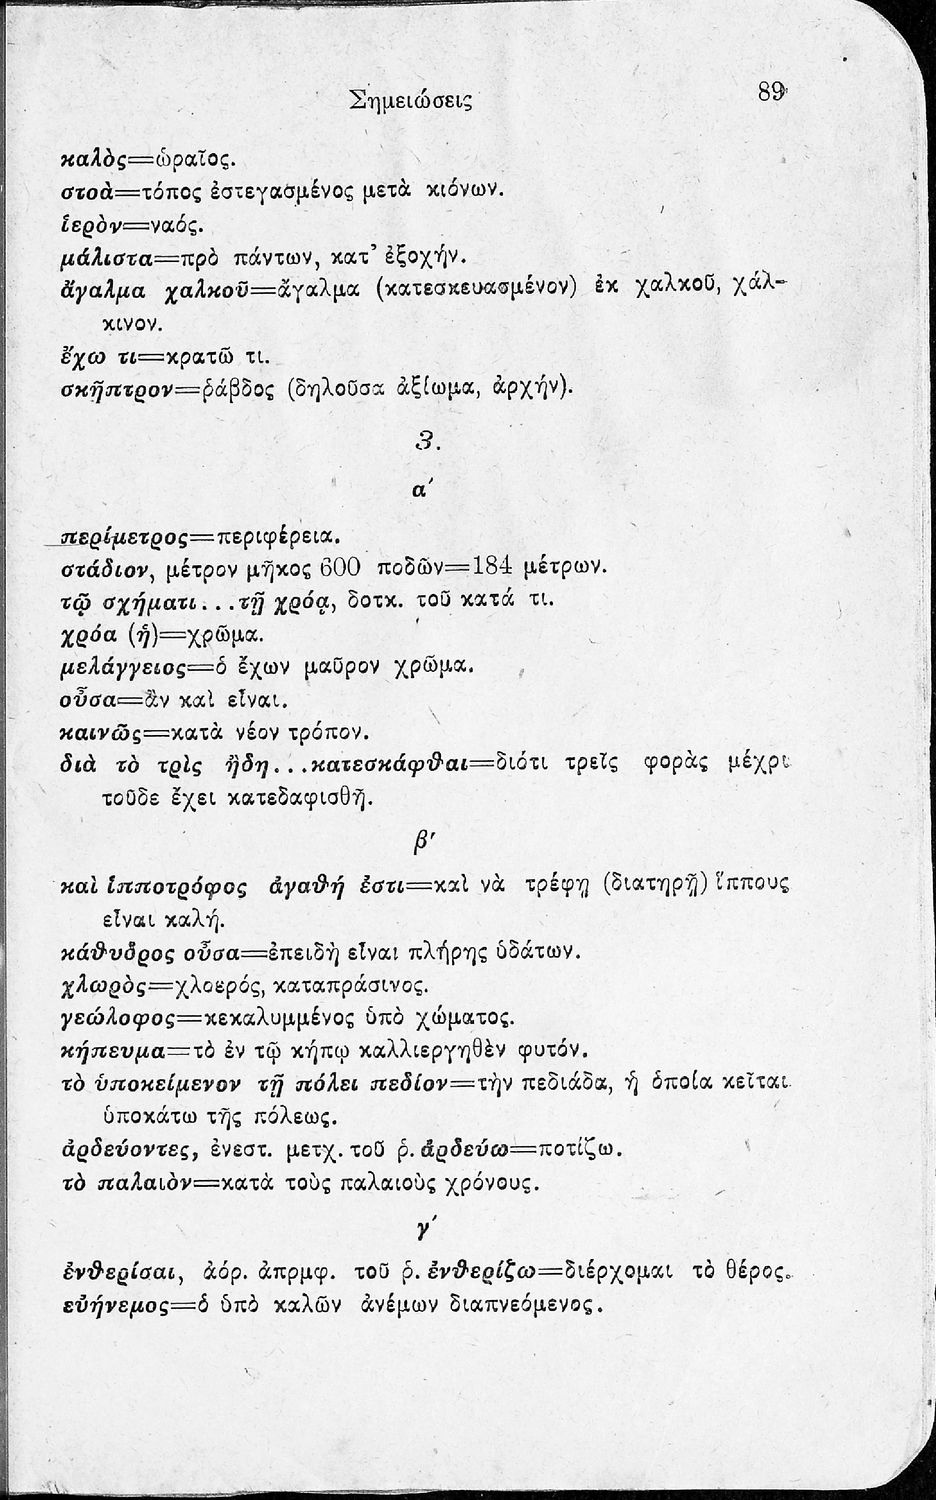 Σημειώσεις
89
καλὸς=ὡραῖος.
στοὰ=τόπος ἐστεγασμένος μετὰ κιόνων.
ἱερὸν=ναός.
μάλιστα=πρὸ πάντων, κατ᾽ ἐξοχήν.
ἄγαλμα χαλκοῦ=ἄγαλμα (κατεσκευασμένον) ἐκ χαλκοῦ, χάλ-
κινον.
ἔχω τι=κρατῶ τι.
σκῆπτρον=ῥάβδος (δηλοῦσα ἀξίωμα, ἀρχήν).
3.
α΄
περίμετρος=περιφέρεια.
στάδιον, μέτρον μῆκος 600 ποδῶν=184 μέτρων.
τῷ σχήματι...τῇ χρόᾳ, δοτκ. τοῦ κατά τι.
χρόα (ἡ)=χρῶμα.
μελάγγειος=ὁ ἔχων μαῦρον χρῶμα.
οὖσα=ἂν καὶ εἶναι.
καινῶς=κατὰ νέον τρόπον.
διὰ τὸ τρὶς ἤδη...κατεσκάφθαι=διότι τρεῖς φορὰς μέχρι
τοῦδε ἔχει κατεδαφισθῆ.
β΄
καὶ ἱπποτρόφος ἀγαθή ἐστι=καὶ νὰ τρέφῃ (διατηρῇ) ἵππους
εἶναι καλή.
κάθυδρος οὖσα=ἐπειδὴ εἶναι πλήρης ὑδάτων.
χλωρὸς=χλοερός, καταπράσινος.
γεώλοφος=κεκαλυμμένος ὑπὸ χώματος.
κήπευμα=τὸ ἐν τῷ κήπῳ καλλιεργηθὲν φυτόν.
τὸ ὑποκείμενον τῇ πόλει πεδίον=τὴν πεδιάδα, ἡ ὁποία κεῖται
ὑποκάτω τῆς πόλεως.
ἀρδεύοντες, ἐνεστ. μετχ. τοῦ ῥ. ἀρδεύω=ποτίζω.
τὸ παλαιὸν=κατὰ τοὺς παλαιοὺς χρόνους.
γ΄
ἐνθερίσαι, ἀόρ. ἀπρμφ. τοῦ ῥ. ἐνθερίζω=διέρχομαι τὸ θέρος.
εὐήνεμος=ὁ ὑπὸ καλῶν ἀνέμων διαπνεόμενος.